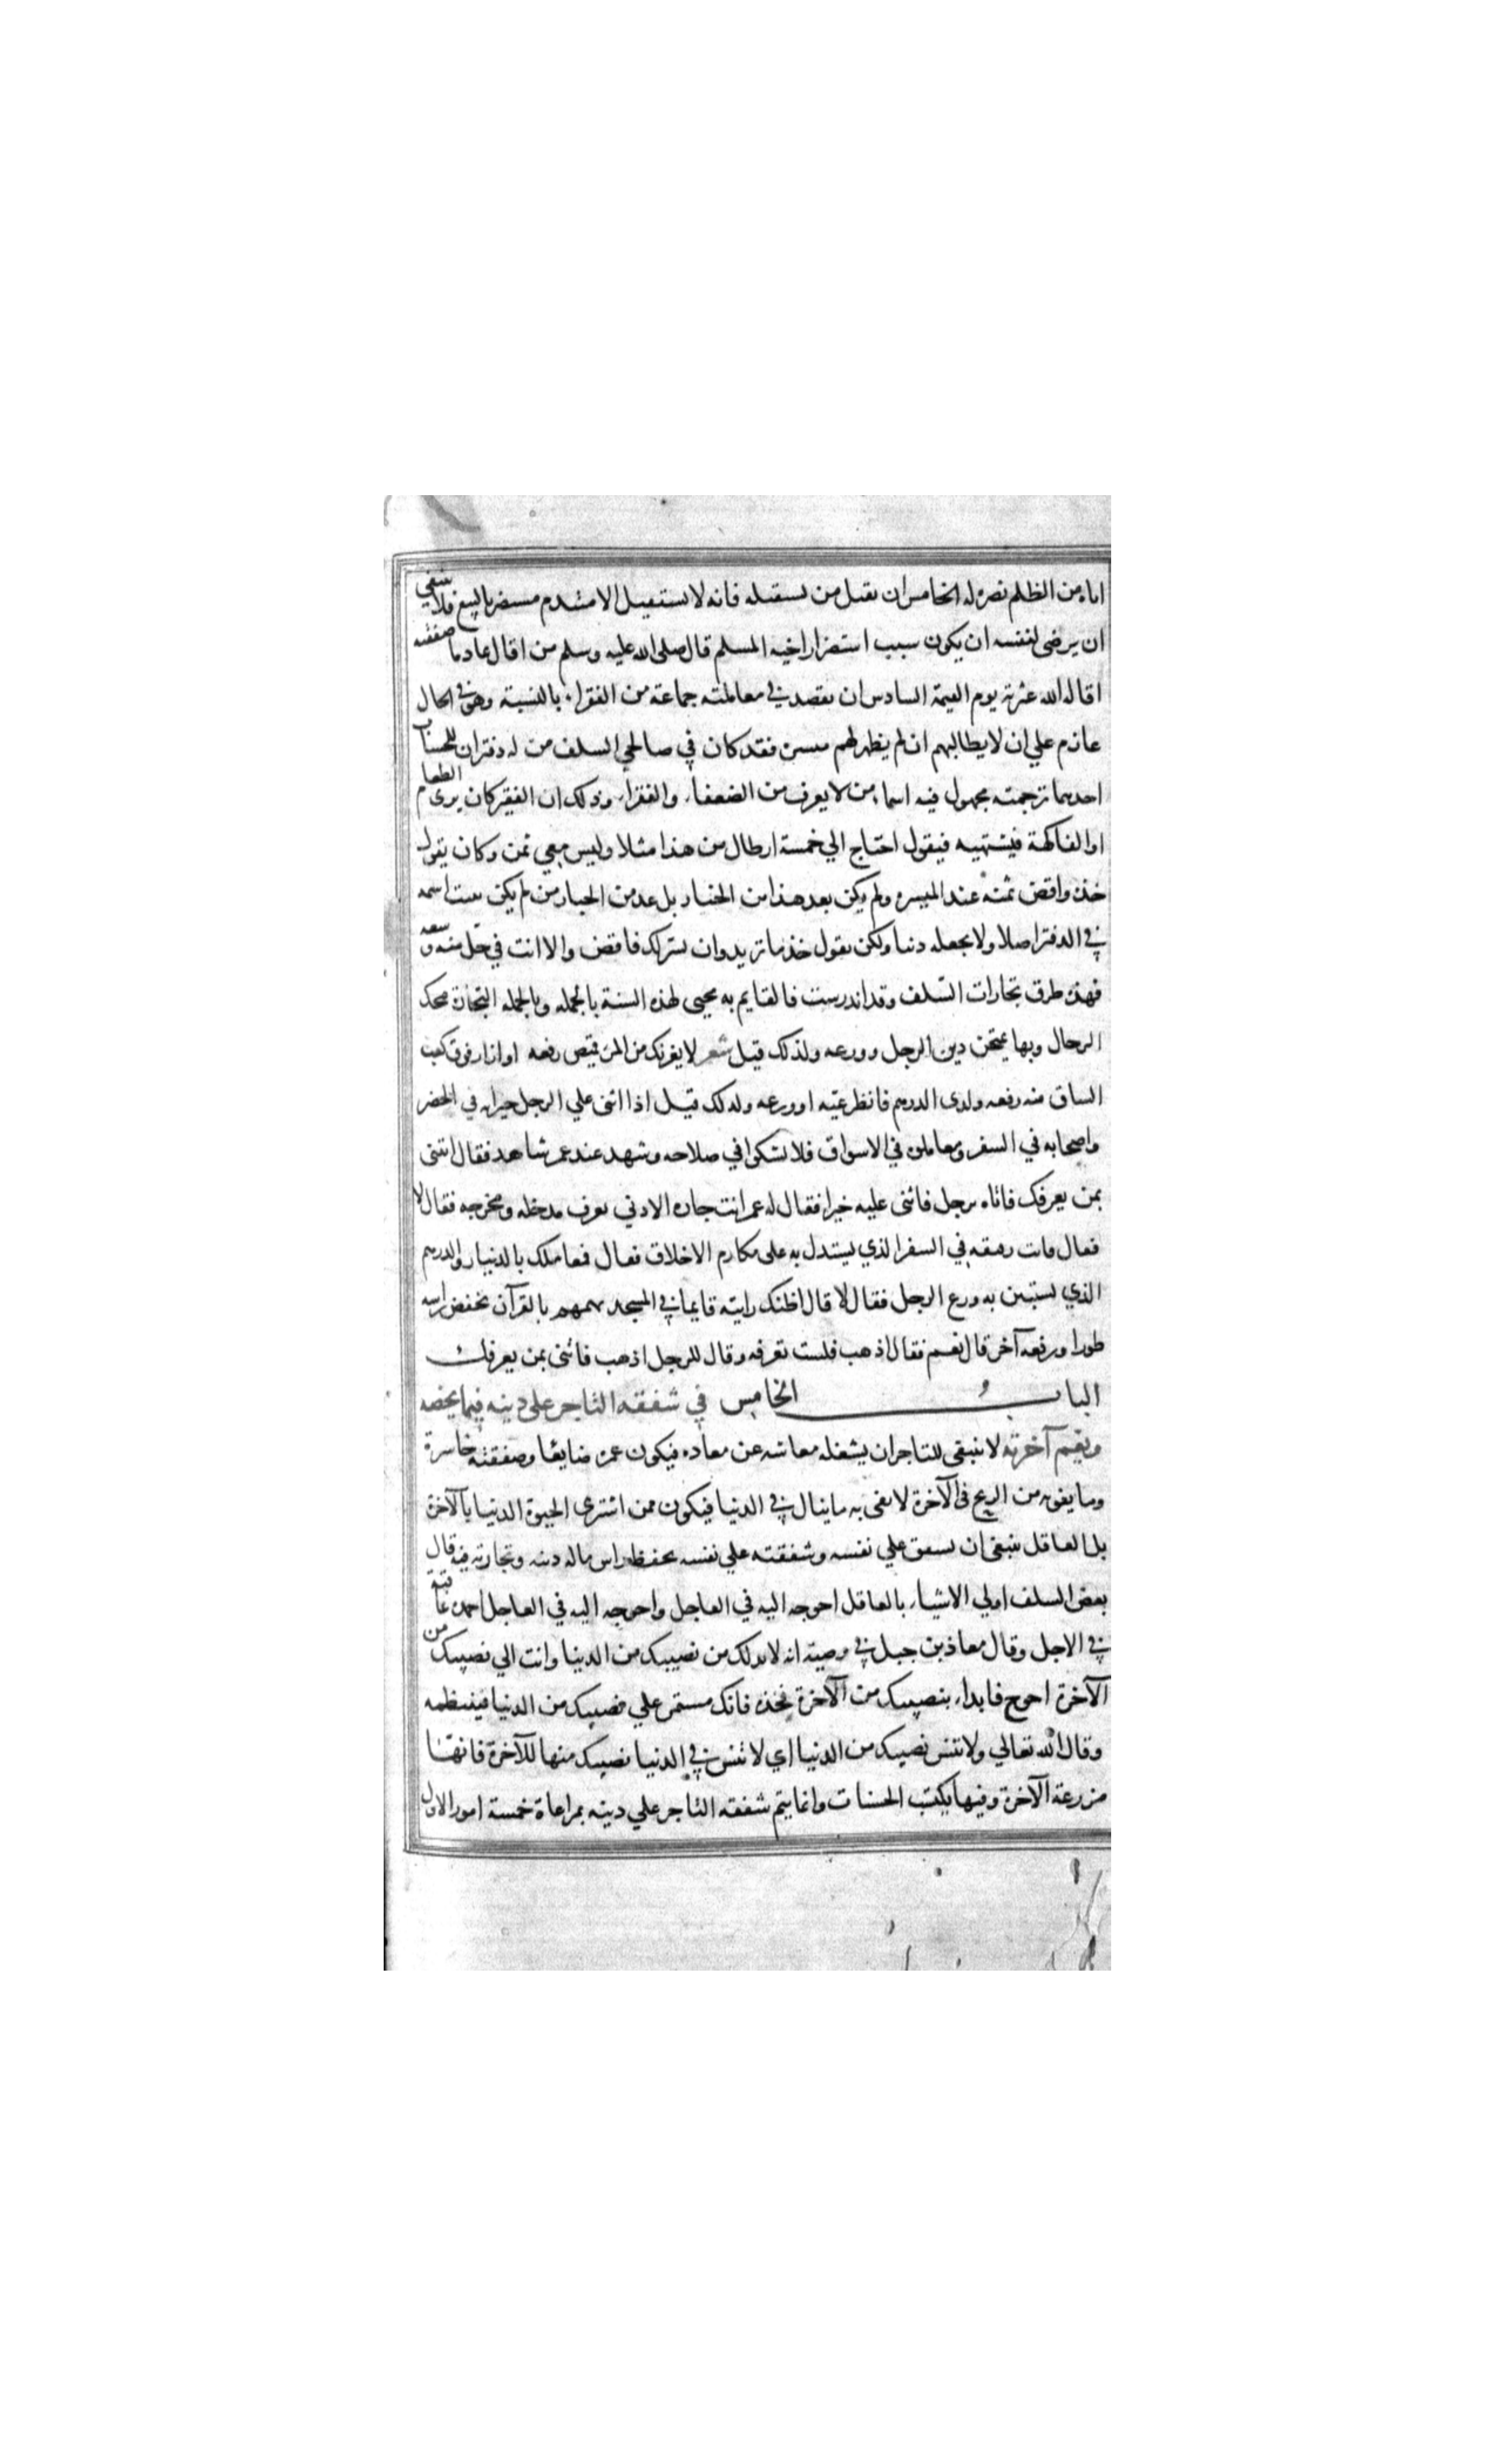 اياه من الظلم نصرة له الخامس ان يقيل من يستقيله فانه لا يستقيل الا متندم مستضر بالبيع فلا ينبغي
ان يرضى لنفسه ان يكون سبب استضرار اخيه المسلم قال صلى الله عليه وسلم من اقال نادما صفقته
اقاله الله عثرته يوم القيمة السادس ان يقصد في معاملته جماعة من الفقراء بالنسية وهو في الحال
عازم علي ان لا يطالبهم ان لم يظهر لهم ميسرة فقد كان في صالحي السلف من له دفتران للحساب
احديهما ترجمته مجهول فيه اسماء من لا يعرف من الضعفاء والفقراء وذلك ان الفقير كان يرى الطعام
او الفاكهة فيشتهيه فيقول احتاج الي خمسة ارطال من هذا مثلا وليس معي ثمن وكان يقول
خذه واقض ثمنه عند الميسرة ولم يكن يعد هذا من الخيار بل عد من الخيار من لم يكن يثبت اسمه
في الدفتر اصلا ولا يجعله دينا ولكن يقول خذ ما تريد وان يسر لك فاقض والا انت في حل منه وسعه
فهذه طرق تجارات السلف وقد اندرست فالقايم به محيي لهذه السنة بالجمله وبالجمله التجارة محك
الرجال وبها يمتحن دين الرجل وورعه ولذلك قيل شعر لا يغرنك من المرء قميص رقعه او ازار فوق كعب
الساق منه رفعه ولدى الدرهم فانظر غيه او ورعه ولذلك قيل اذا اثنى علي الرجل جيرانه في الحضر
واصحابه في السفر ومعاملوه في الاسواق فلا تشكوا في صلاحه وشهد عند عمر شاهد فقال ائتنى
بمن يعرفك فاتاه برجل فاثنى عليه خيرا فقال له عمر انت جاره الادني تعرف مدخله ومخرجه فقال لا
فقال فانت رفيقه في السفر الذي يستدل به على مكارم الاخلاق فقال فعاملك بالدنيار والدرهم
الذي يستبين به ورع الرجل فقال لا قال اظنك رايته قايما في المسجد يهمهم بالقرآن يخفض راسه
طورا ويرفعه آخر قال نعم فقال اذهب فلست تعرفه وقال للرجل اذهب فائتنى بمن يعرفك
الباب الخامس في شفقة التاجر على دينه فيما يخصه
ويعم آخرته لا ينبغي للتاجر ان يشغله معاشه عن معاده فيكون عمره ضايعا وصفقته خاسرة
وما يفوته من الربح في الآخرة لا يفى به ما ينال في الدنيا فيكون ممن اشترى الحيوة الدنيا بالآخرة
بل العاقل ينبغي ان يشفق علي نفسه وشفقته علي نفسه بحفظ راس ماله دينه وتجارته فيه قال
بعض السلف اولي الاشياء بالعاقل احوجه اليه في العاجل واحوجه اليه في العاجل احمده عاقبة
في الاجل وقال معاذ بن جبل في وصيته انه لا بد لك من نصيبك من الدينا وانت الي نصيبك من
الآخرة احوج فابداء بنصيبك من الآخرة فخذه فانك مستمر علي نصيبك من الدنيا فينتظمه
وقال الله تعالي ولا تنس نصيبك من الدنيا اي لا تنس في الدنيا نصيبك منها للآخرة فانها
مزرعة الآخرة وفيها يكتب الحسنات وانما يتم شفقة التاجر علي دينه بمراعاة خمسة امور الاول